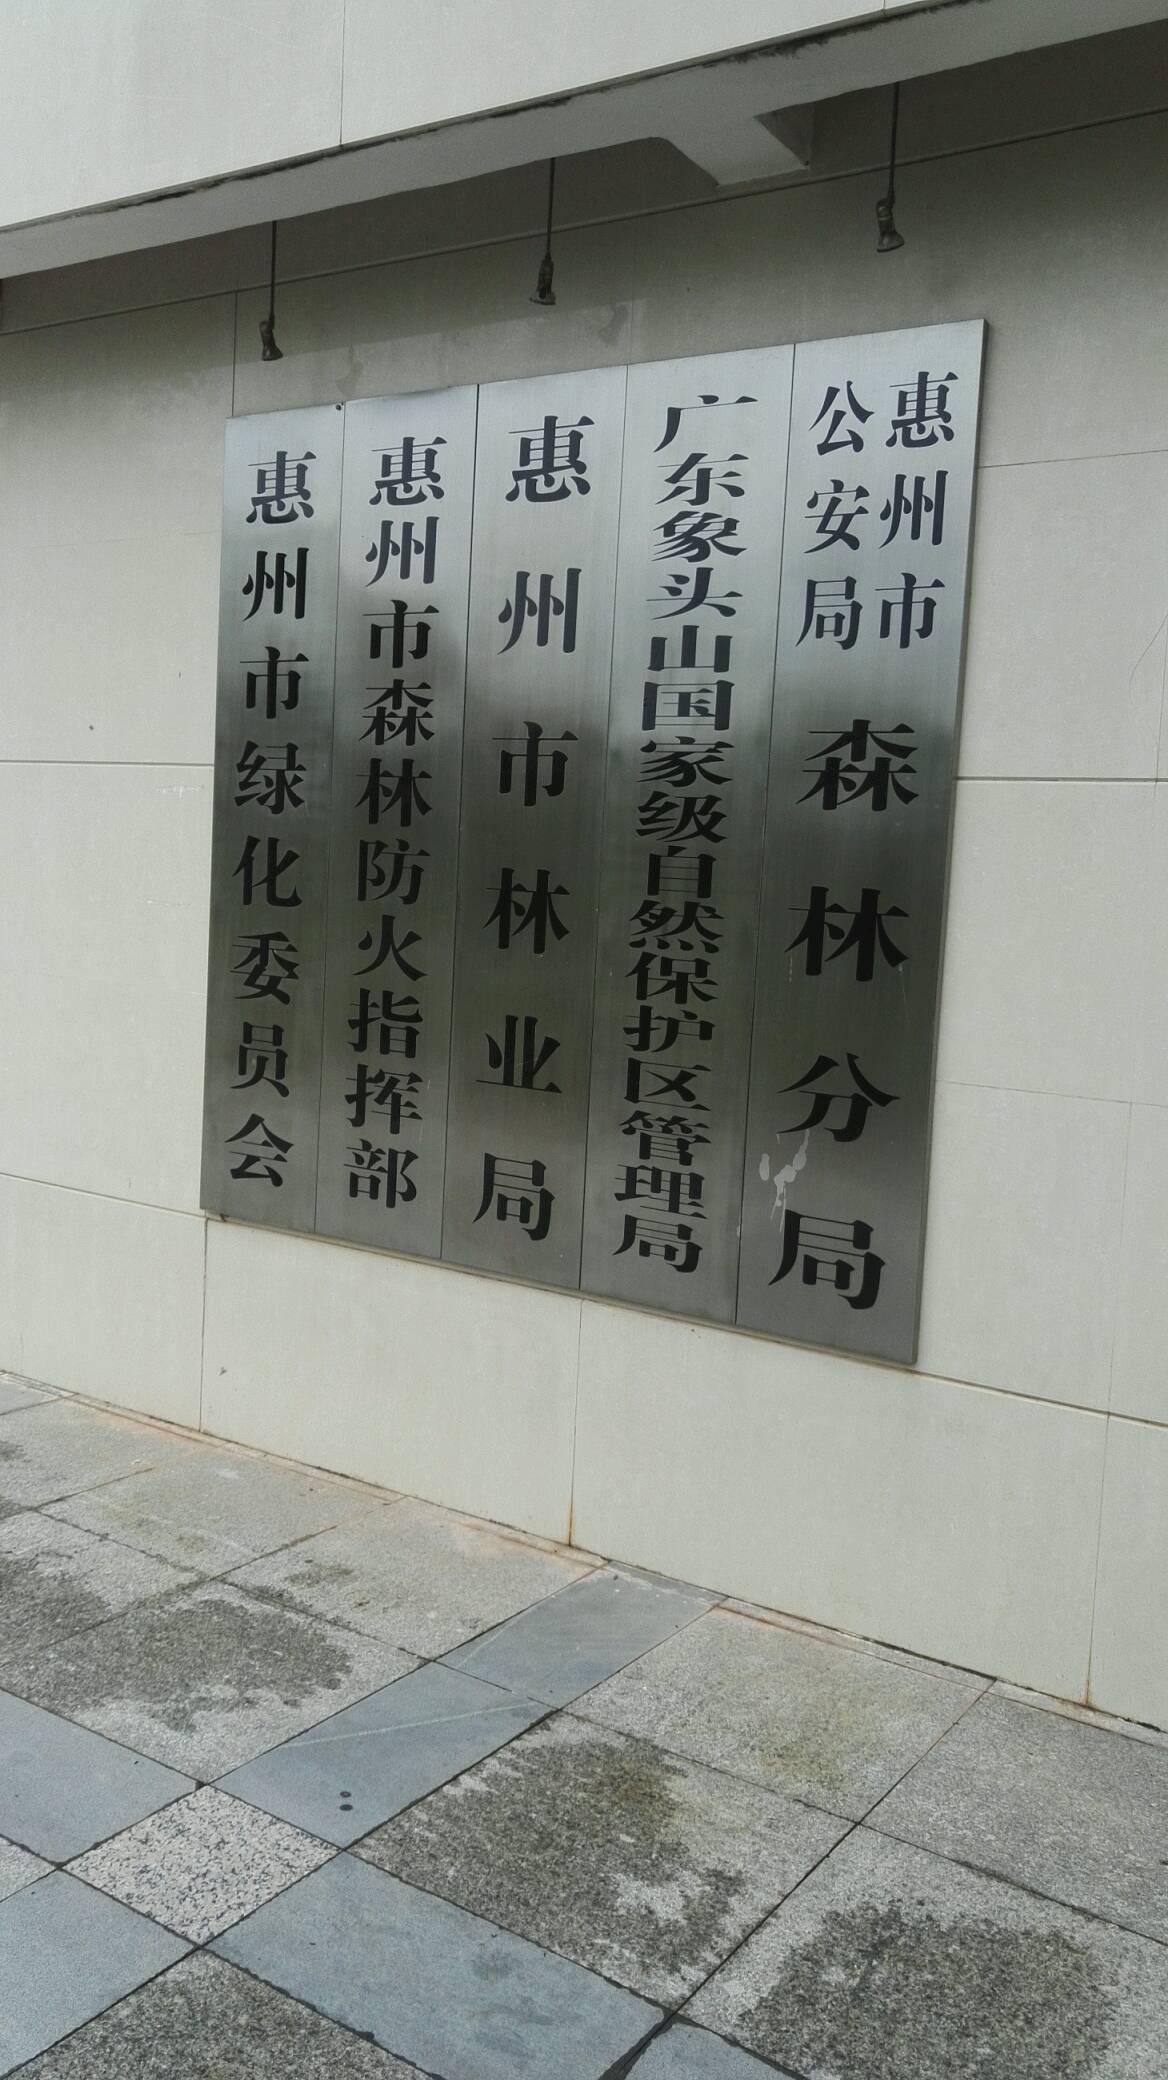 惠州市绿化委员会
惠州市森林防火指挥部
惠州市林业局
广东象头山国家级自然保护区管理局
惠州市
公安局
森林分局